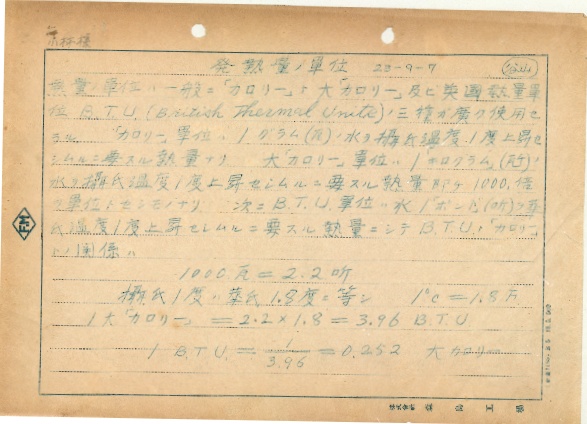 発熱量ノ単位 23-9-7
熱量ノ単位ハ一般ニ「カロリー」ト大「カロリー」及ビ英国熱量単
位 B.T.U. (British Thermal Units)ノ三種ガ広ク使用セ
ラル 「カロリー」単位ハ1グラム(瓦)ノ水ヲ攝氏温度1度上昇セ
シムルニ要スル熱量ナリ 大「カロリー」単位ハ1キログラム
水ヲ攝氏温度1度上昇セシムルニ要スル熱量即チ1000倍
ヲ単位トセシモノナリ 次ニB.T.U.単位ハ水1ポンド(听)ヲ華
氏温度1度上昇セシムルニ要スル熱量ニシテB.T.U.ト「カロリー」
トノ関係ハ
1000瓦=2.2听
攝氏1度ハ華氏1.8度ニ等シ 1°C=1.8
1大「カロリー」=2.2×1.8=3.96 B.T.U.
1 B.T.U.=1/3.96=0.252 大カロリー
株式会社